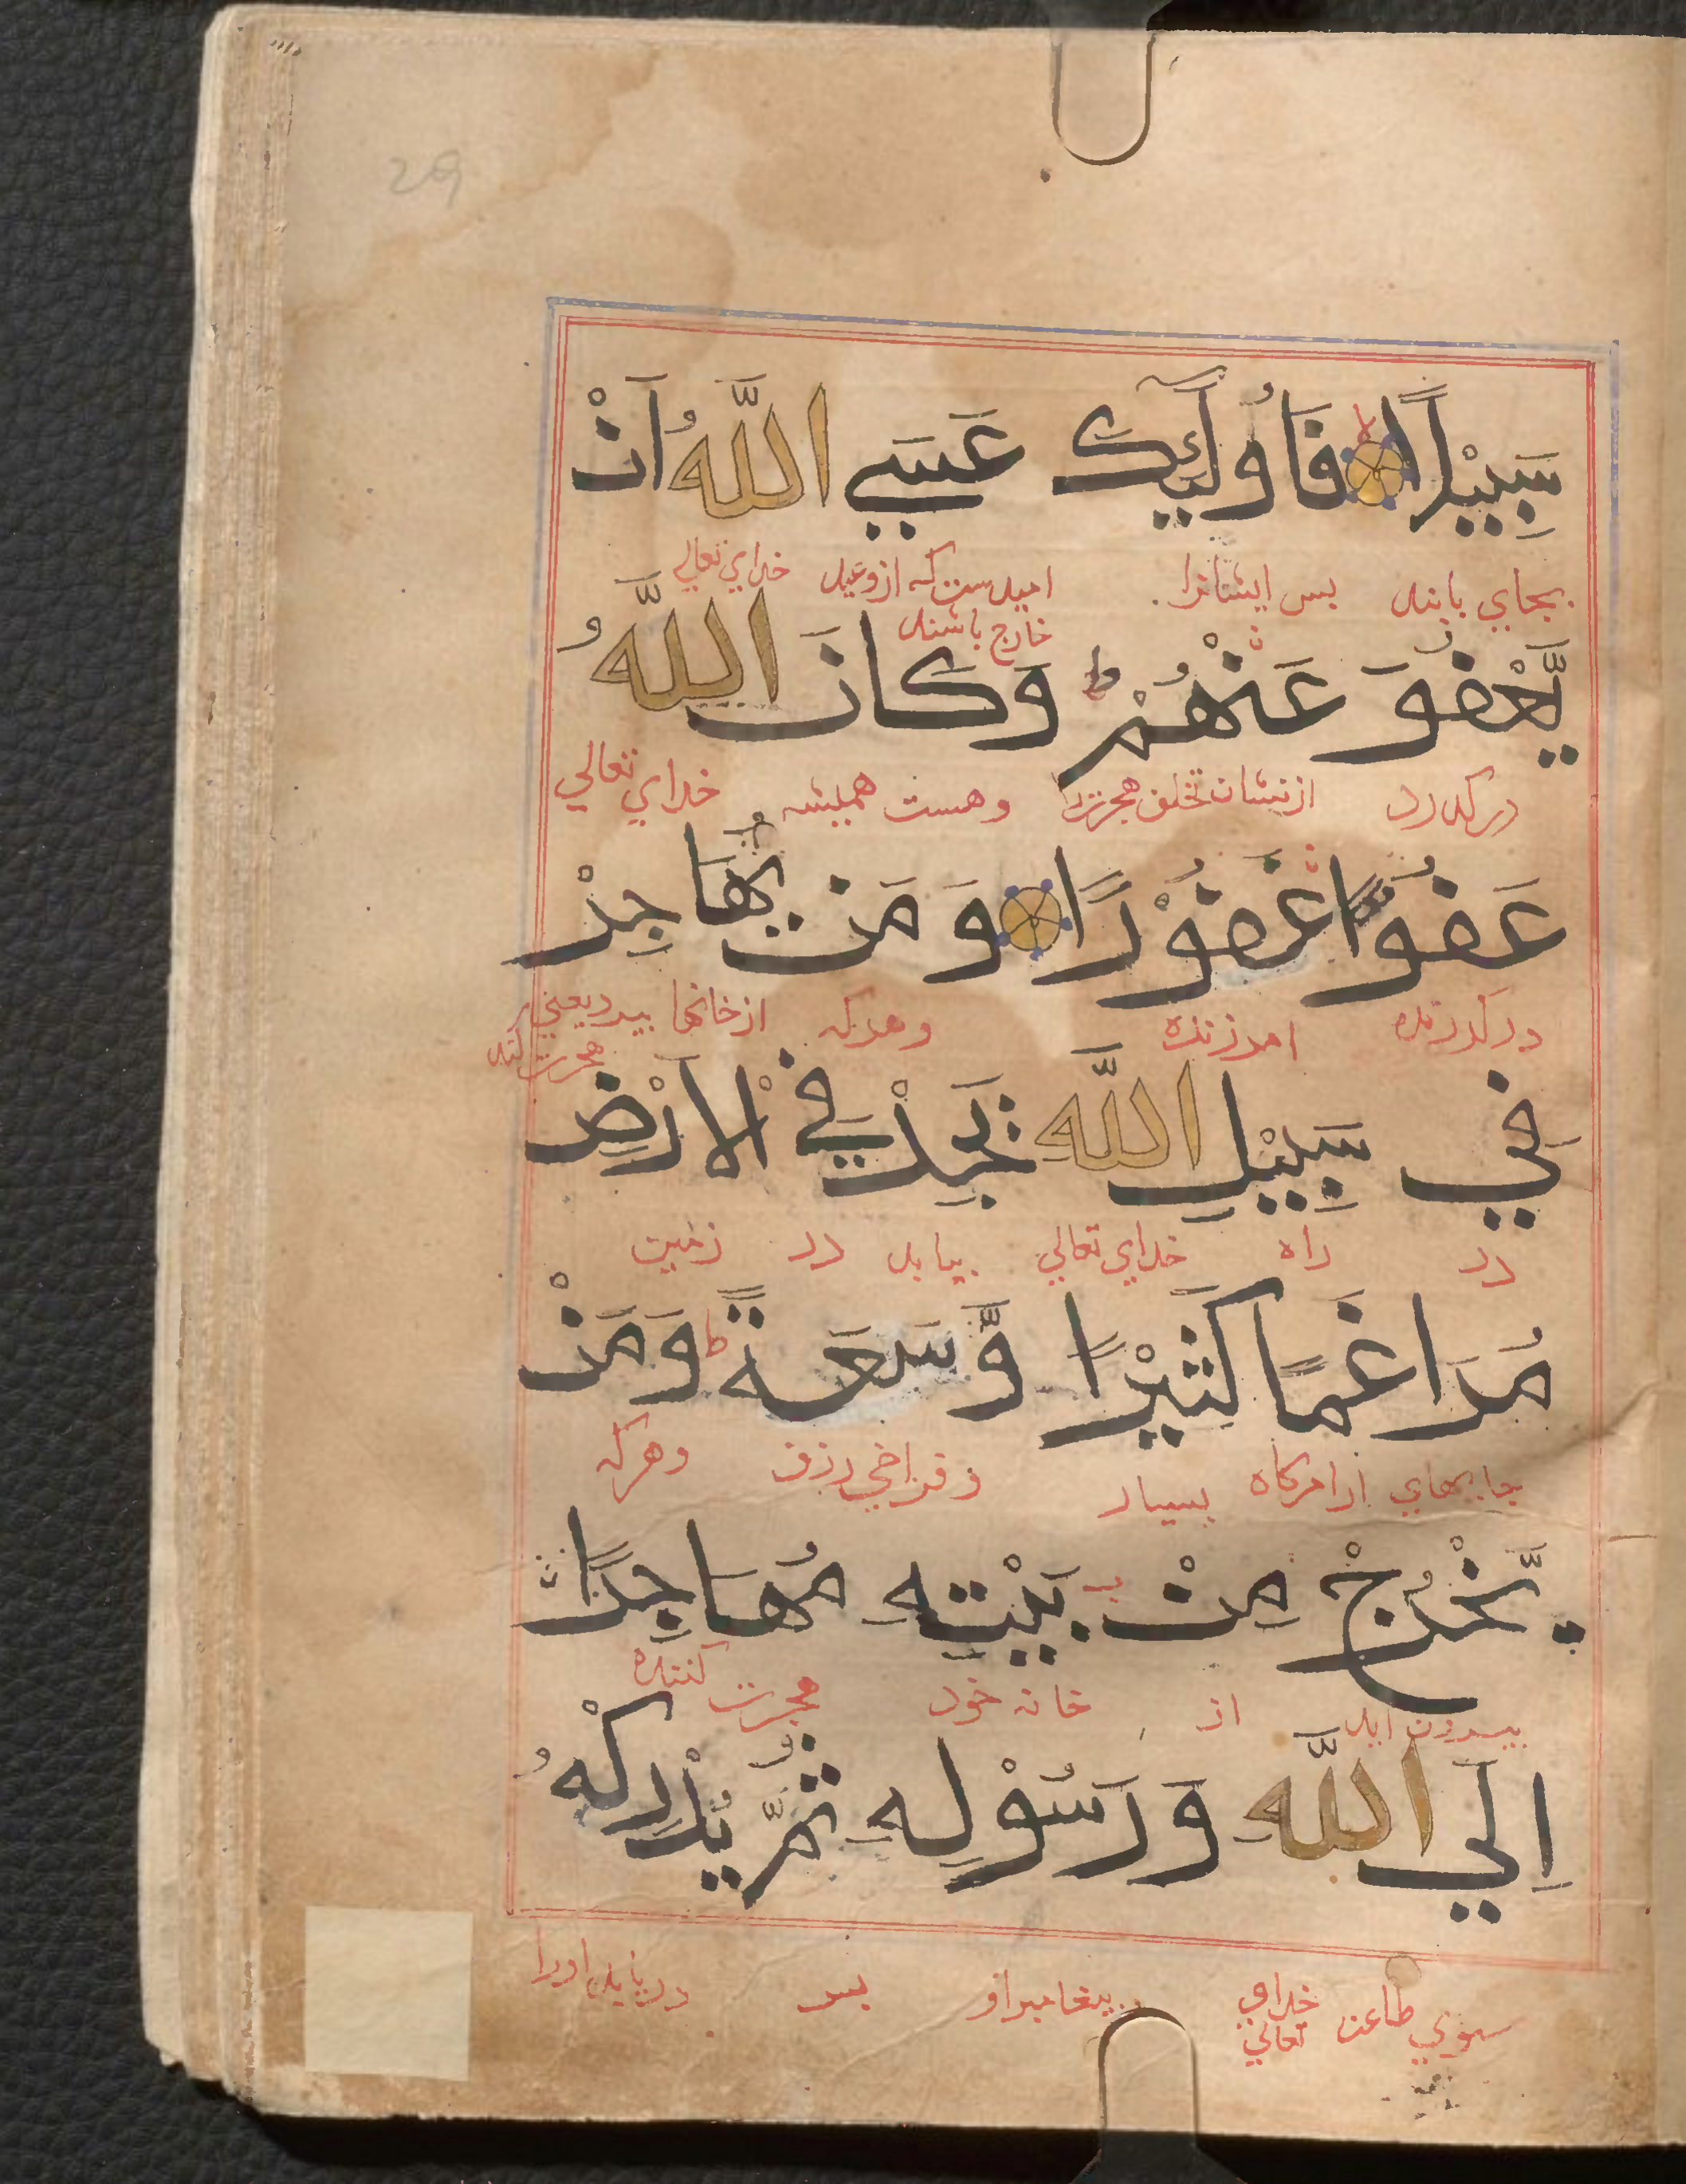 29
سَبِيْلًا لا فَاُولٰٓئِكَ عَسَي اللّٰهُ اَنْ
بجاي يابند بس ايشانرا اميدست كه ازوعيد خداي تعالي
خارج باشند
يَّعْفُوَ عَنْهُمْ ط وَكَانَ اللّٰهُ
دركدرد از تخلف هجرت وهست هميشه خداي تعالي
عَفُوًّا غَفُوْرًا وَ مَنْ يُّهَاجِرْ
دركدرنده امرزنده وهركه ازخانها ببرد يعني
هجرت كند
فِي سَبِيْلِ اللّٰهِ يَجِدْ فِي الْاَرْضِ
در راه خداي تعالي بيابد در زمين
مُرَاغَمًا كَثِيْرًا وَّسَعَةً ط وَمَنْ
جايهاي ارامكاه بسيار و فراخي رزق وهركه
يَّخْرُجْ مِنْ بَيْتِهٖ مُهَاجِرًا
بيرون ايد از خانه خود هجرت كننده
اِلَي اللّٰهِ وَرَسُوْلِهٖ ثُمَّ يُدْرِكْهُ
سوي طاعت خداي تعالي بيغامبر او بس دريابد اورا